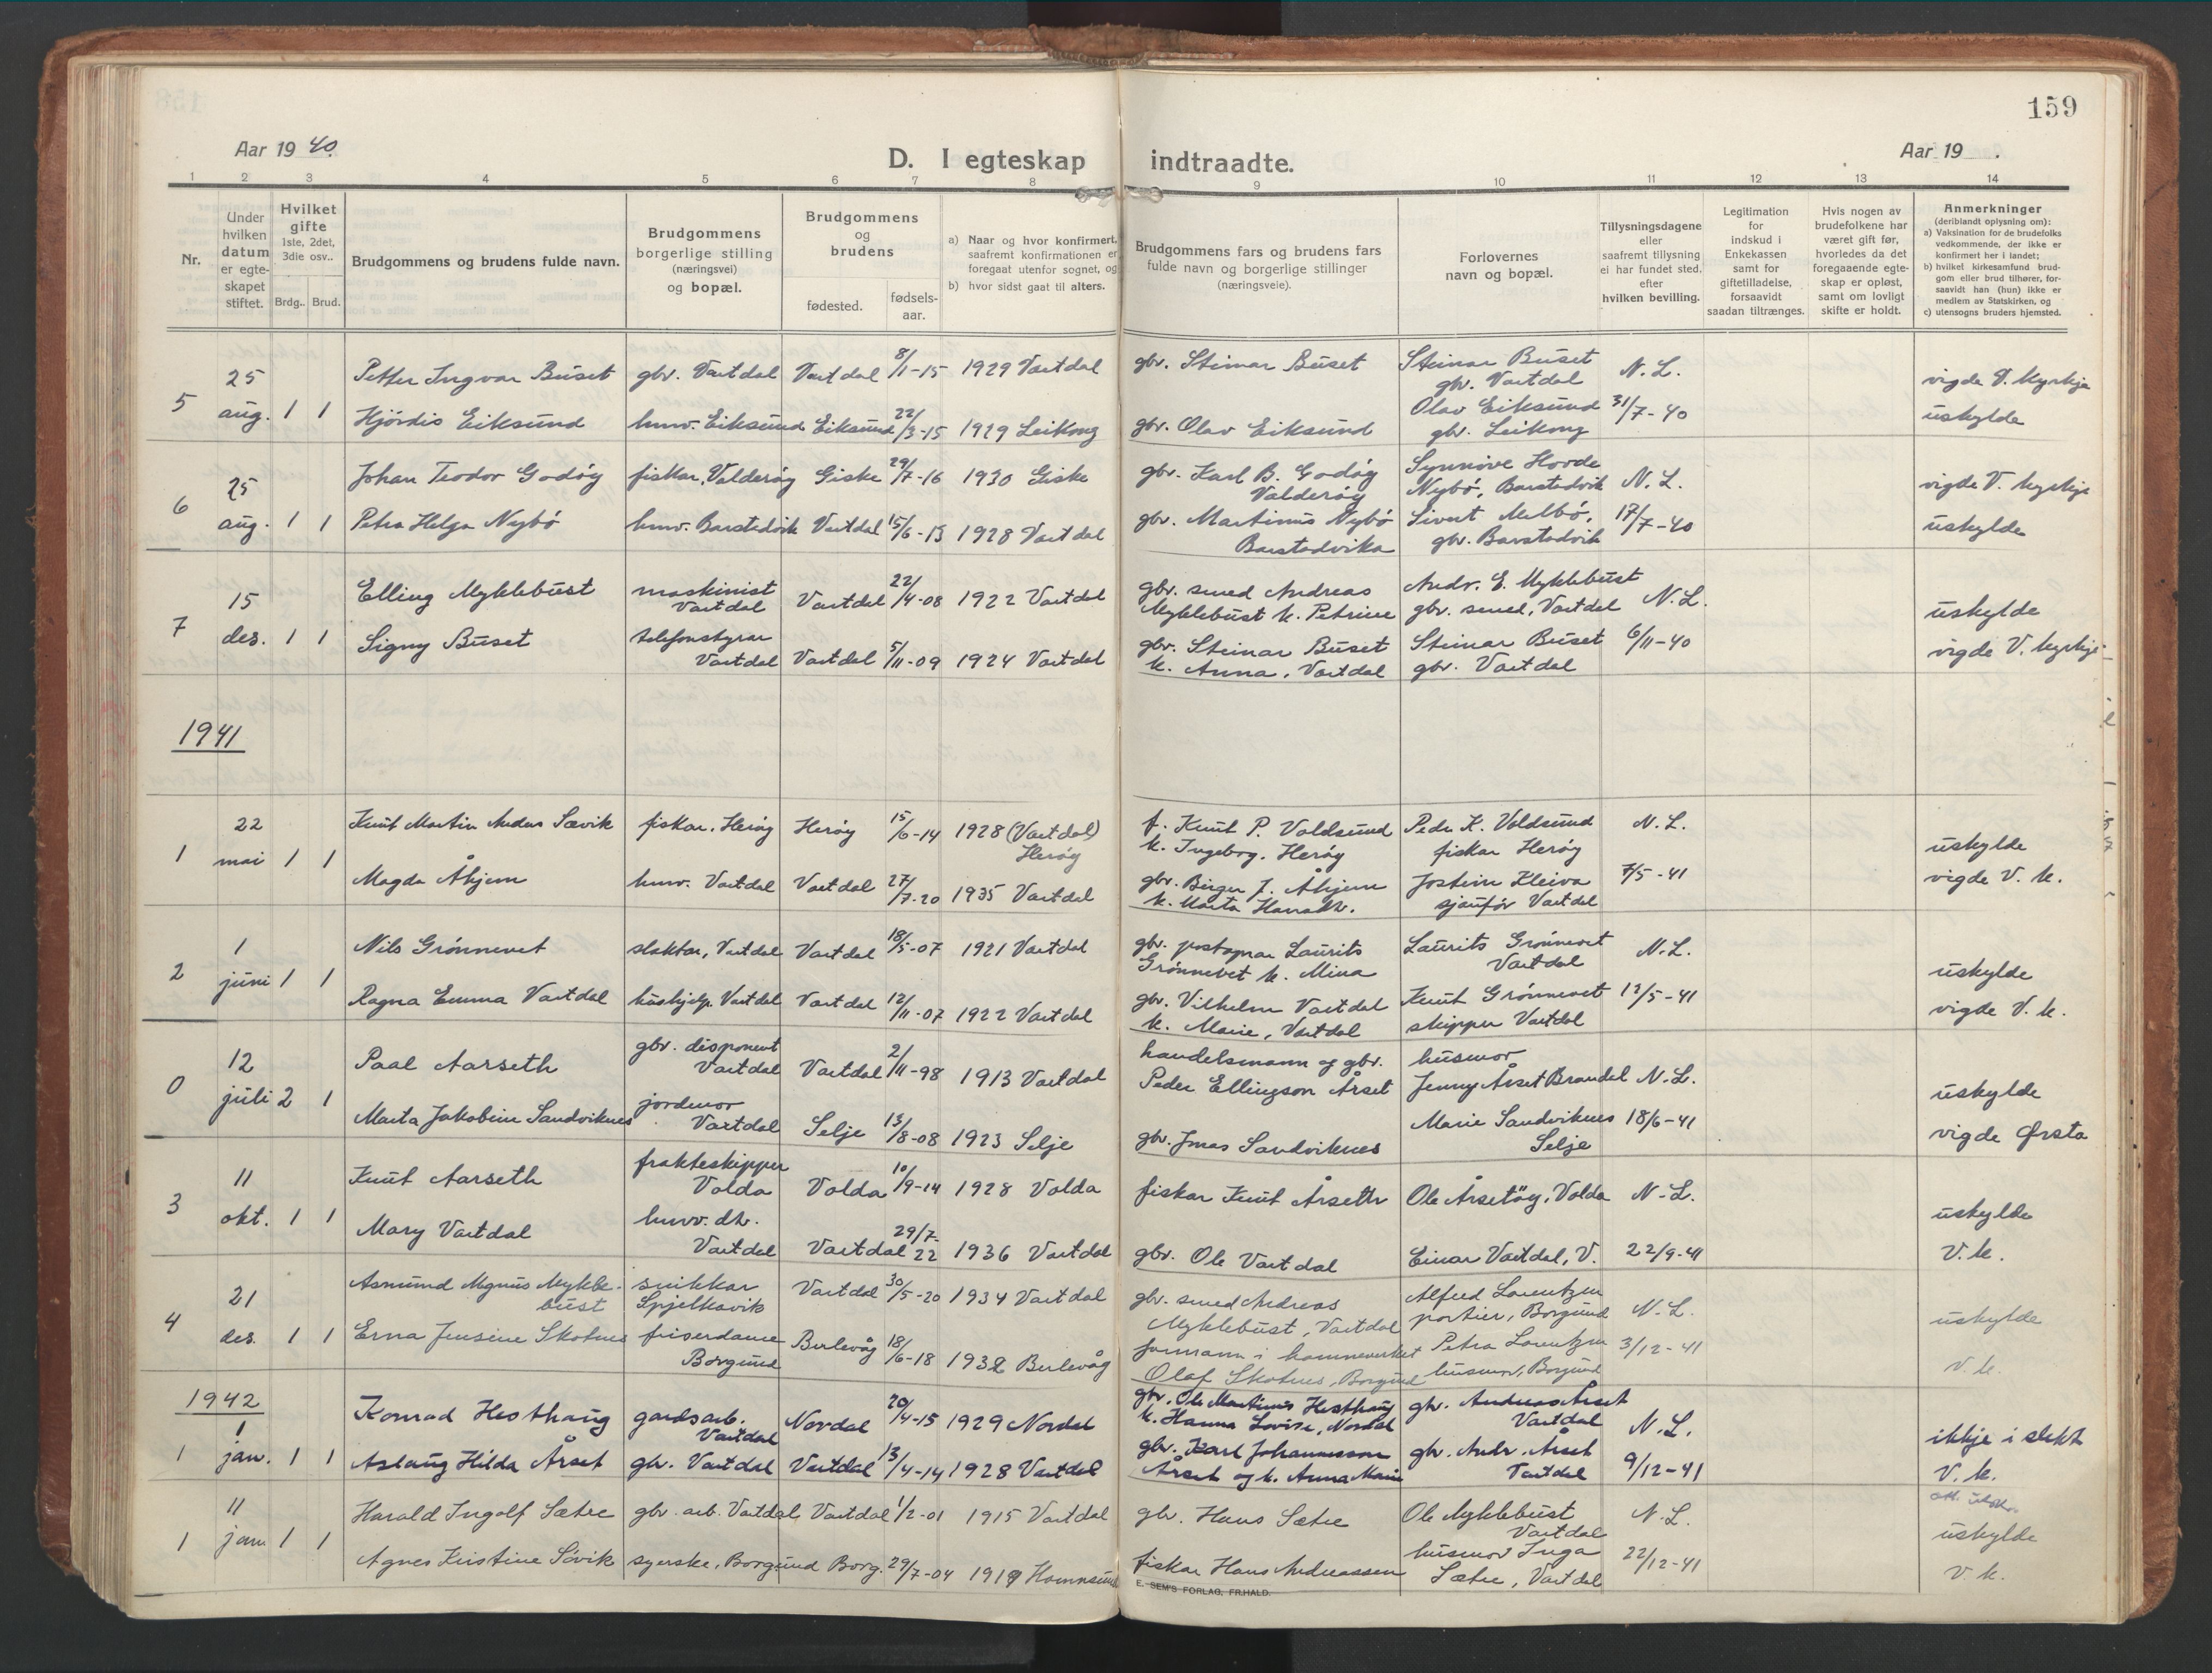 159
Aar 19 40.
D. I egteskap indtraadte.
Aar 19 .
1 2 3 4 5 6 7 8 9 10 11 12 13 14
Nr.
Under hvilken datum er egte-skapet stiftet.
Hvilket gifte 1ste, 2det, 3die osv..
Brdg.. Brud.
Brudgommens og brudens fulde navn.
Brudgommens borgerlige stilling (næringsvei) og bopæl.
Brudgommens og brudens
fødested. fødsels-aar.
a) Naar og hvor konfirmert, saafremt konfirmationen er foregaat utenfor sognet, og
b) hvor sidst gaat til alters.
Brudgommens fars og brudens fars fulde navn og borgerlige stillinger (næringsveie).
Forlovernes navn og bopæl.
Tillysningsdagene eller saafremt tillysning ei har fundet sted, efter hvilken bevilling.
Legitimation for indskud i Enkekassen samt for giftetilladelse, forsaavidt saadan tiltrænges.
Hvis nogen av brudefolkene har været gift før, hvorledes da det foregaaende egte-skap er opløst, samt om lovligt skifte er holdt.
Anmerkninger (deriblandt oplysning om):
a) Vaksination for de brudefolks vedkommende, der ikke er konfirmert her i landet;
b) hvilket kirkesamfund brud-gom eller brud tilhører, for-saavidt han (hun) ikke er medlem av Statskirken, og
c) utensogns bruders hjemsted.
5 25 aug. 1 1
Petter Ingvar Buset gbr. Vartdal Vartdal 8/1-15 1929 Vartdal gbr. Steinar Buset Steinar Buset gbr. Vartdal N.L. vigde V. kyrkje
Hjördis Eiksund husv. Eiksund Eiksund 22/3-15 1929 Leikong gbr. Olav Eiksund Olav Eiksund gbr. Leikong 31/7-40 uskylde
6 25 aug. 1 1
Johan Teodor Godöy fiskar, Valderöy Giske 29/7-16 1930 Giske gbr. Karl B. Godöy Valderöy Synnöve Hovde Nybö, Barstadvik N.L. vigde V. kyrkje
Petra Helga Nybö husv. Barstadvik Vartdal 15/6-13 1928 Vartdal gbr. Martinus Nybö Barstadvika Sivert Melbö, gbr. Barstadvik 17/7-40 uskylde
7 15 des. 1 1
Elling Myklebust maskinist Vartdal Vartdal 22/4-08 1922 Vartdal gbr. smed Andreas Myklebust k. Petrine Andr. E. Myklebust gbr. smed, Vartdal N.L. uskylde
Signy Buset telefonstyrar Vartdal Vartdal 5/11-09 1924 Vartdal gbr. Steinar Buset k. Anna, Vartdal Steinar Buset gbr. Vartdal 6/11-40 vigde V. kyrkje
1941
1 22 mai 1 1
Knut Martin Andus Sævik fiskar, Heröy Heröy 15/6-14 1928 (Vartdal) Heröy f. Knut P. Voldsund k. Ingeborg, Heröy Peder K. Voldsund fiskar Heröy N.L. uskylde
Magda Åhjem husv. Vartdal Vartdal 27/7-20 1935 Vartdal gbr. Birger J. Åhjem k. Marta Vartdal Jostein Kleiva sjauför Vartdal 7/5-41 vigde V. k.
2 1 juni 1 1
Nils Grönnevet slaktar, Vartdal Vartdal 18/5-07 1921 Vartdal gbr. postopnar Laurits Grönnevet k. Mina Laurits Grönnevet Vartdal N.L. uskylde
Ragna Emma Vartdal hushjelp. Vartdal Vartdal 12/11-07 1922 Vartdal gbr. Vilhelm Vartdal k. Marie, Vartdal Knut Grönnevet skipper Vartdal 12/5-41 vigde V. k.
0 12 juli 2 1
Paal Aarseth gbr. disponent Vartdal Vartdal 2/11-98 1913 Vartdal handelsmann og gbr. Peder Ellingson Årset husmor Jenny Årset Brandal N.L. uskylde
Marta Jakobine Sandviknes jordmor Vartdal Selje 13/8-08 1923 Selje gbr. Jonas Sandviknes Marie Sandviknes Selje 18/6-41 vigde Ørsta
3 11 okt. 1 1
Knut Aarseth frakteskipper Volda Volda 10/9-14 1928 Volda fiskar Knut Årseth Ole Årsetöy, Volda N.L. uskylde
Mary Vartdal husv. dtr. Vartdal Vartdal 29/7-22 1936 Vartdal gbr. Ole Vartdal Einar Vartdal, V. 22/9-41 V. k.
4 21 des. 1 1
Asmund Magnus Myklebust snikkar Spjelkavik Vartdal 30/5-20 1934 Vartdal gbr. smed Andreas Myklebust, Vartdal Alfred Lorentzen portier, Borgund N.L. uskylde
Erna Jensine Skotnes friserdame Borgund Berlevåg 18/6-18 1932 Berlevåg formann i hamneverket Olaf Skotnes, Borgund Petra Lorentzen husmor, Borgund 3/12-41 V. k.
1942
1 1 jan. 1 1
Konrad Hesthaug gardsarb. Vartdal Nordal 20/4-15 1929 Nordal gbr. Ole Martinus Hesthaug k. Hanna Lovise, Nordal gbr. Andreas Årset Vartdal N.L. ikkje i slekt
Aslaug Hilda Årset gbr. Vartdal Vartdal 13/4-14 1928 Vartdal gbr. Karl Johannesson Årset og k. Anna Marie gbr. Andr. Årset Vartdal 9/12-41 V. k.
1 11 jan 1 1
Harald Ingolf Sætre gbr. arb. Vartdal Vartdal 1/2-01 1915 Vartdal gbr. Hans Sætre Ole Myklebust Vartdal N.L. uskylde
Agnes Kristine Sövik syerske, Borgund Borg. 29/7-04 1919 Hamnsund fiskar Hans Andreassen husmor Inga Sætre, Vartdal 22/12-41 V. k.
E. SEM'S FORLAG, FR.HALD.